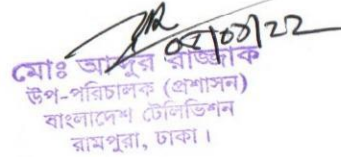 ০৫/০৩/২২
মোঃ আব্দুর রাজ্জাক
উপ-পরিচালক (প্রশাসন)
বাংলাদেশ টেলিভিশন
রামপুরা, ঢাকা।